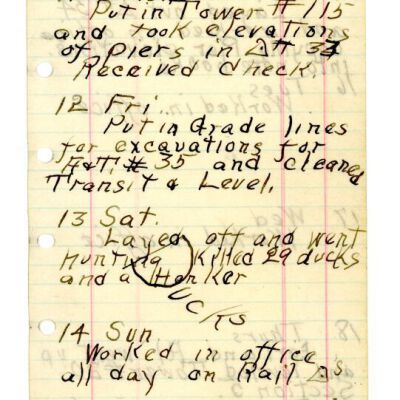 Put in Tower # 115
and took elevations
of piers in Δ# 37
Received check.
12 Fri.
Put in Grade lines
for excavations for
A&T. # 35 and cleaned
Transit & Level.
13 Sat.
Layed off and went
Hunting Killed 29 ducks
and a Honker
UCKS
14 Sun
Worked in office
all day on Rail Δs